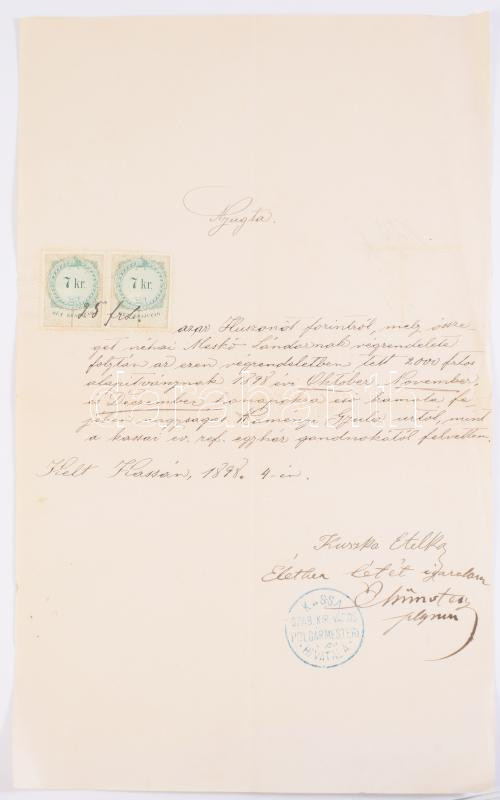 Nyugta.
7 kr. 7 kr.
25 frt.
azaz Huszonöt forintról, mely össze-
get néhai Meskó Sándornak végrendelete
folytán az ezen végrendeletben tett 2000 frtos
alapítványnak 1898 évi Oktober, November,
és Deczember hónapokra eső kamata fe-
jében nagyságos Kéményi Gyula urtól, mint
a kassai ev. ref. egyház gondnokától felvettem.
Kelt Kassán, 1898. 4-én.
Kuszka Etelka
Életben létét igazolom
KASSA
SZAB. KIR. VÁROS
POLGÁRMESTERI
HIVATALA
darabanth